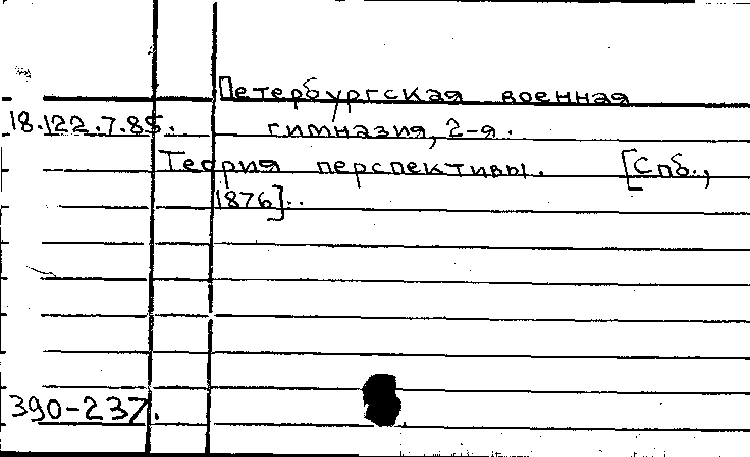 Петербургская военная
18.122.7.85. гимназия, 2-я.
Теория перспективы. [Спб.,
1876].
390-237.